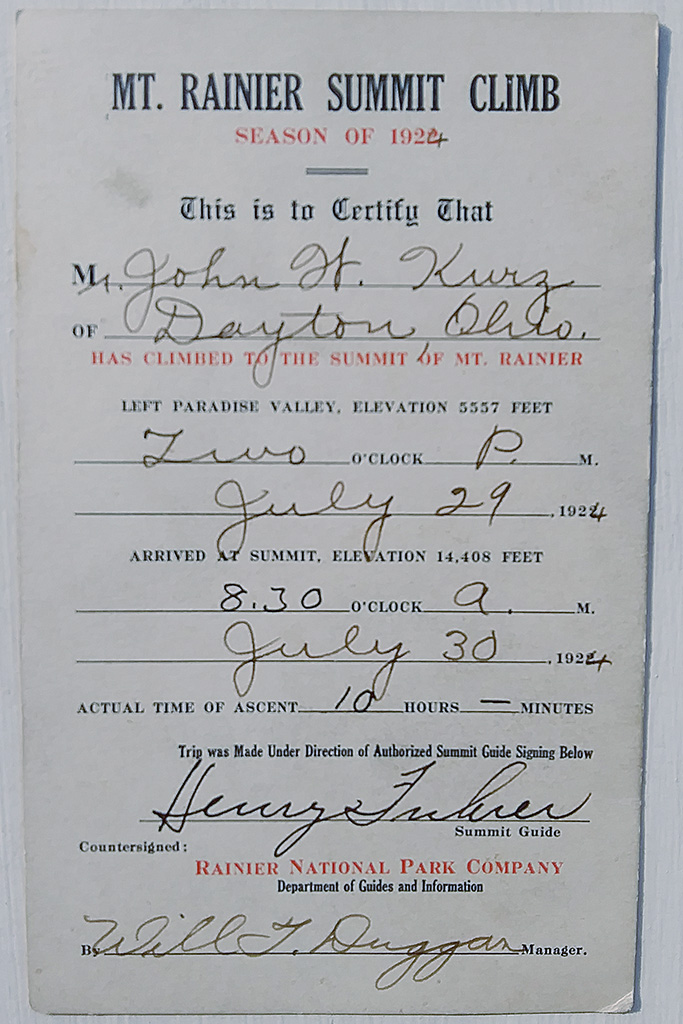 MT. RAINIER SUMMIT CLIMB
SEASON OF 1924
This is to Certify That
Mr. John W. Kurz
OF Dayton, Ohio.
HAS CLIMBED TO THE SUMMIT OF MT. RAINIER
LEFT PARADISE VALLEY, ELEVATION 5557 FEET
Two O'CLOCK P. M.
July 29, 1924
ARRIVED AT SUMMIT, ELEVATION 14,408 FEET
8.30 O'CLOCK a. M.
July 30, 1924
ACTUAL TIME OF ASCENT 10 HOURS — MINUTES
Trip was Made Under Direction of Authorized Summit Guide Signing Below
Henry Fuhrer
Summit Guide
Countersigned:
RAINIER NATIONAL PARK COMPANY
Department of Guides and Information
By Will T. Duggan Manager.